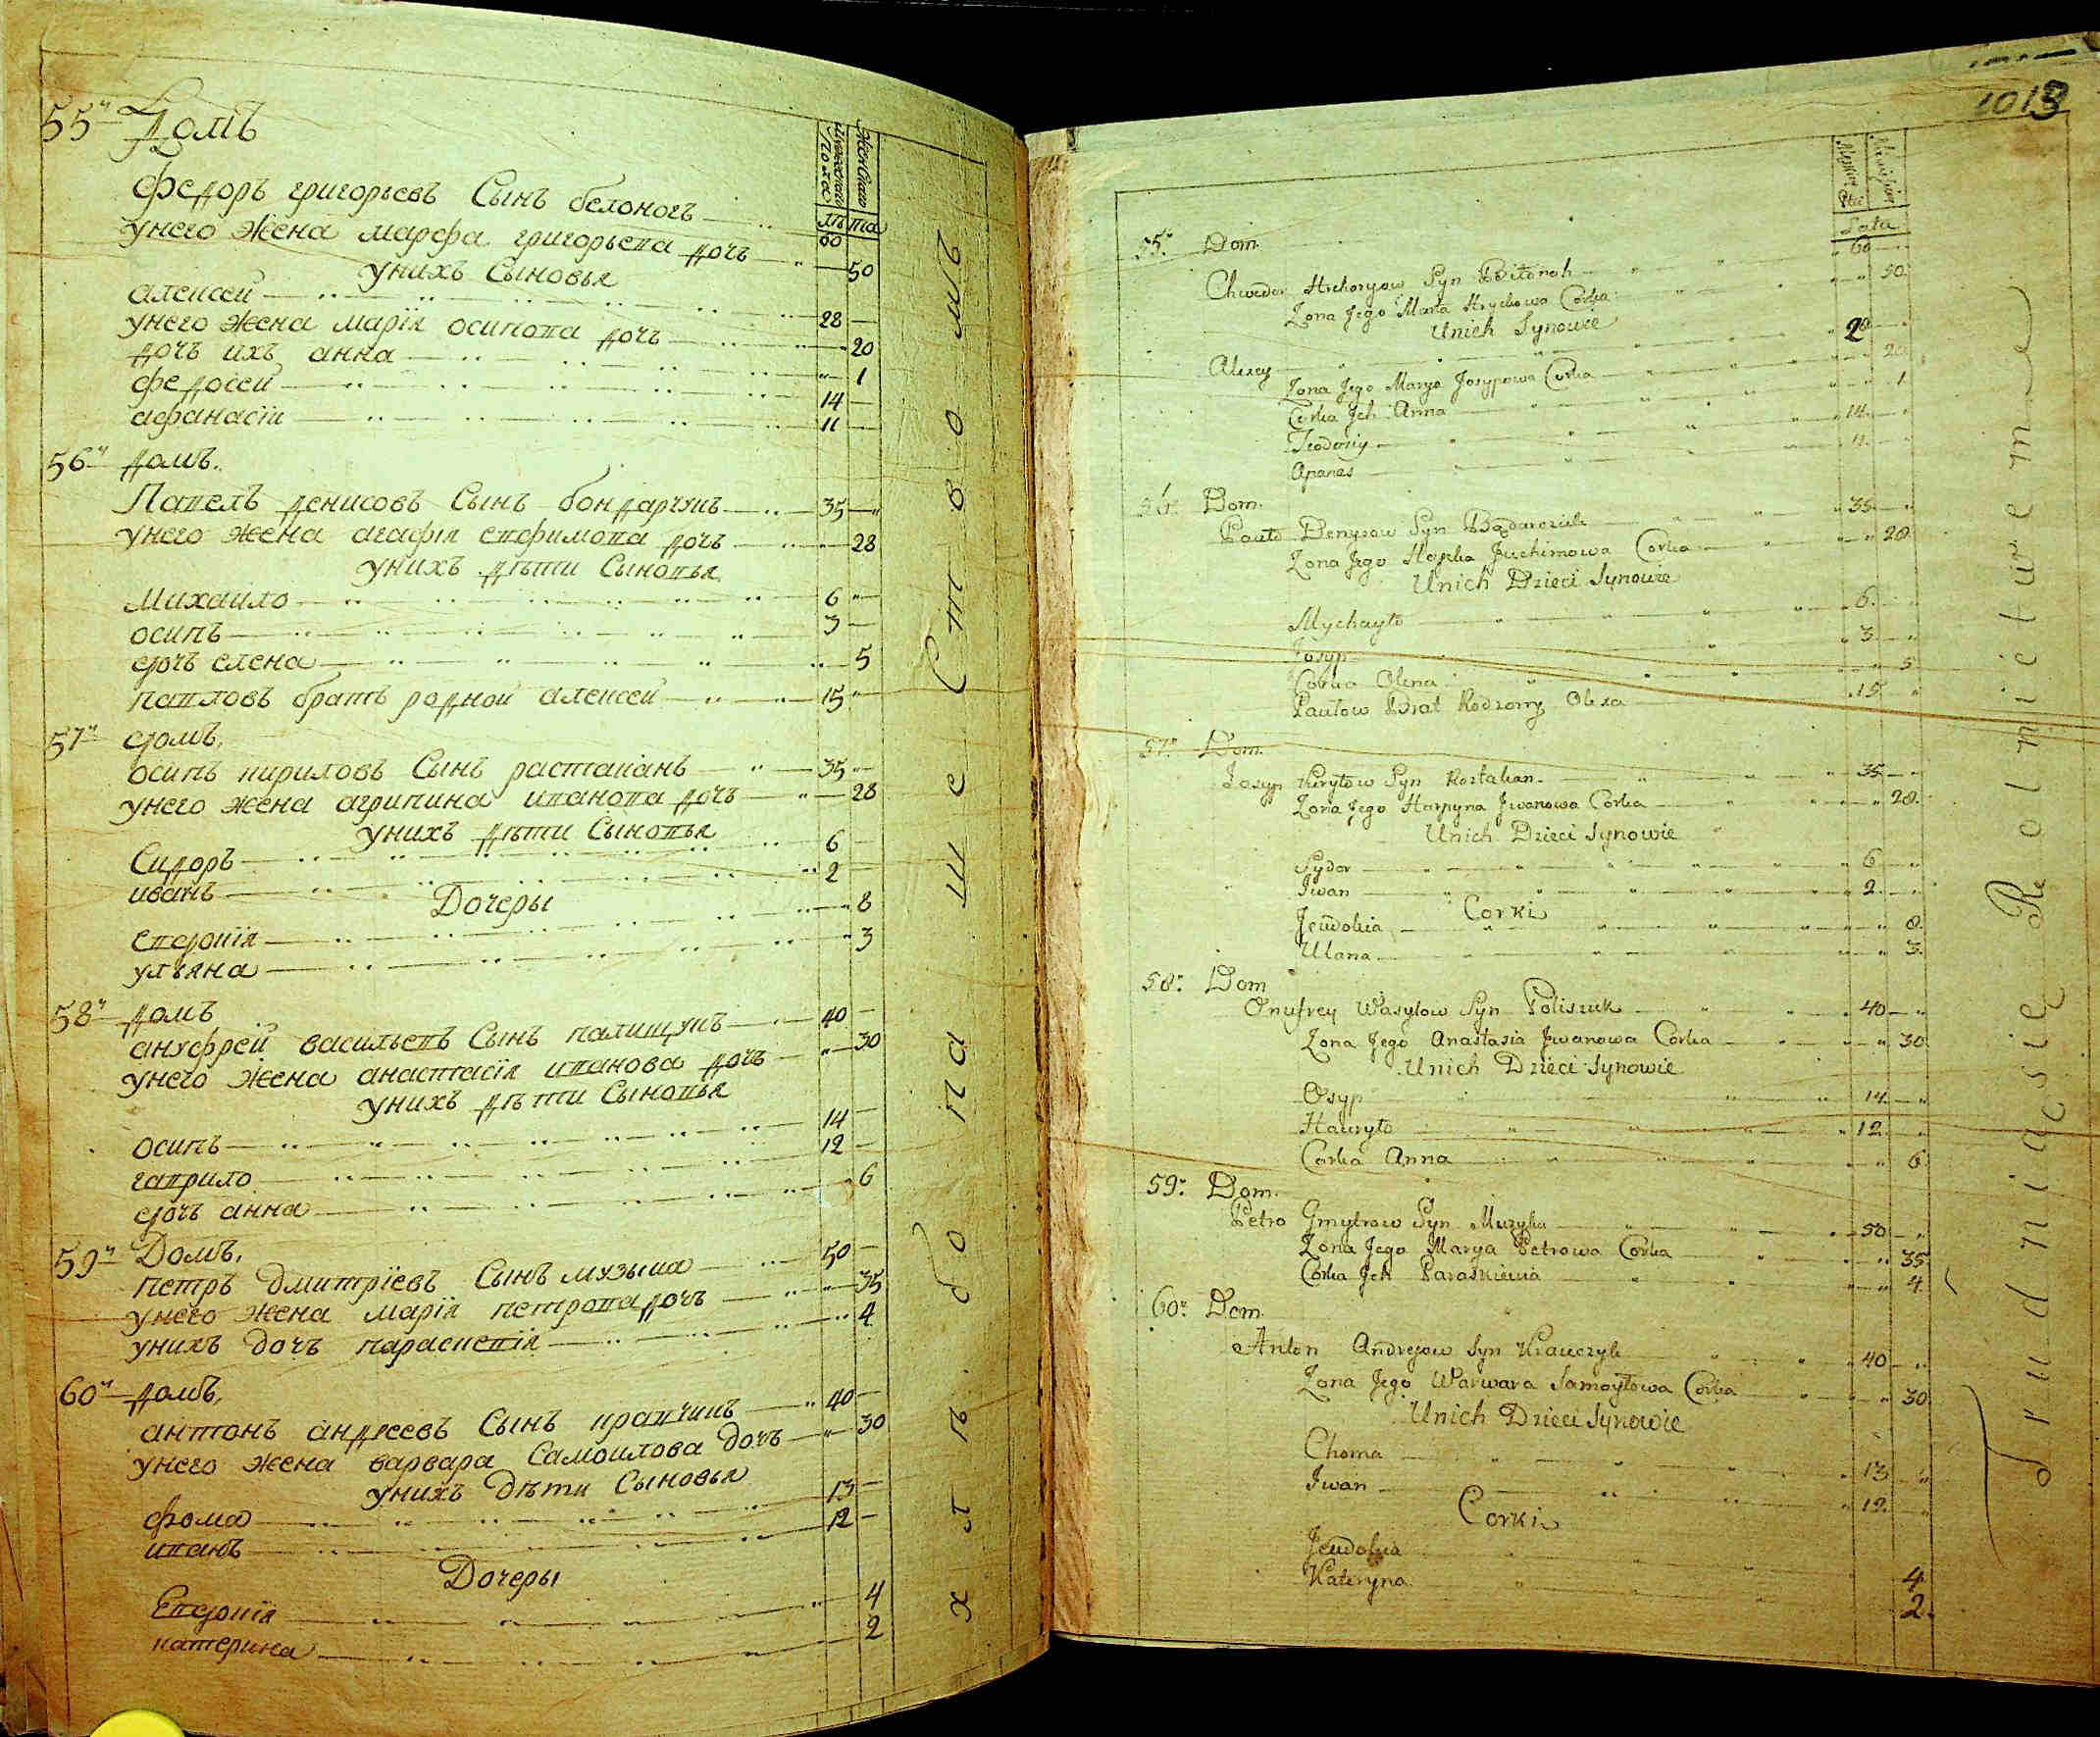 55й Домъ
Мужеска Пола
Женска
лѣ
та
Федоръ григорьевъ Сынъ белоногъ 60
унего жена марфа григорьева дочъ 50
унихъ Сыновья
алексей 28
унего жена марія осипова дочъ 20
дочъ ихъ анна 1
федосей 14
афанасій 11
56й домъ.
Павелъ денисовъ Сынъ бондарчукъ 35
унего жена агафія ефимова дочъ 28
унихъ дѣти Сыновья
Михайло 6
осипъ 3
дочъ елена 5
павловъ братъ родной алексей 15
57й домъ.
осипъ кириловъ Сынъ растаканъ 35
унего жена агрипина иванова дочъ 28
унихъ дѣти Сыновья
Сидоръ 6
иванъ 2
Дочеры
евдокія 8
ульяна 3
58й домъ
ануфрей васильевъ Сынъ палищукъ 40
унего жена анастасія иванова дочъ 30
унихъ дѣти Сыновья
осипъ 14
гаврило 12
дочъ анна 6
59й Домъ.
петръ дмитріевъ Сынъ музыка 50
унего жена марія петрова дочъ 35
унихъ дочъ параскевія 4
60й домъ.
антонъ андреевъ Сынъ кравчикъ 40
унего жена варвара Самойлова дочъ 30
унихъ дѣти Сыновья
фома 13
иванъ 12
Дочеры
Евдокія 4
катерина 2
1013
Lata
55. Dom.
Chwedor Hrehoryow Syn Biłonoh 60
Zona Jego Marta Hryhowa Corka 50
Unich Synowie
Alexey 28
Zona Jego Marya Josypowa Corka 20
Corka Jch Anna 1
Teodosiy 14
Apanas 11
56. Dom.
Pawło Denysow Syn Bądarczuk 35
Zona Jego Hapka Juchimowa Corka 28
Unich Dzieci Synowie
Mychayło 6
Josyp 3
Corka Olena 5
Pawłow Brat Rodzony Olexa 15
57. Dom.
Josyp Kiryłow Syn Rostakan 35
Zona Jego Harpyna Jwanowa Corka 28
Unich Dzieci Synowie
Sydor 6
Jwan 2
Corki
Jewdokia 8
Ulana 3
58. Dom
Onufrey Wasylow Syn Poliszuk 40
Zona Jego Anastasia Jwanowa Corka 30
Unich Dzieci Synowie
Osyp 14
Hawryło 12
Corka Anna 6
59. Dom.
Petro Gmytrow Syn Muzyka 50
Zona Jego Marya Petrowa Corka 35
Corka Jch Paraskiewia 4
60. Dom.
Anton Andrejow Syn Krawczyk 40
Zona Jego Warwara Samoyłowa Corka 30
Unich Dzieci Synowie
Choma 13
Jwan 12
Corki
Jewdokia 4
Kateryna 2